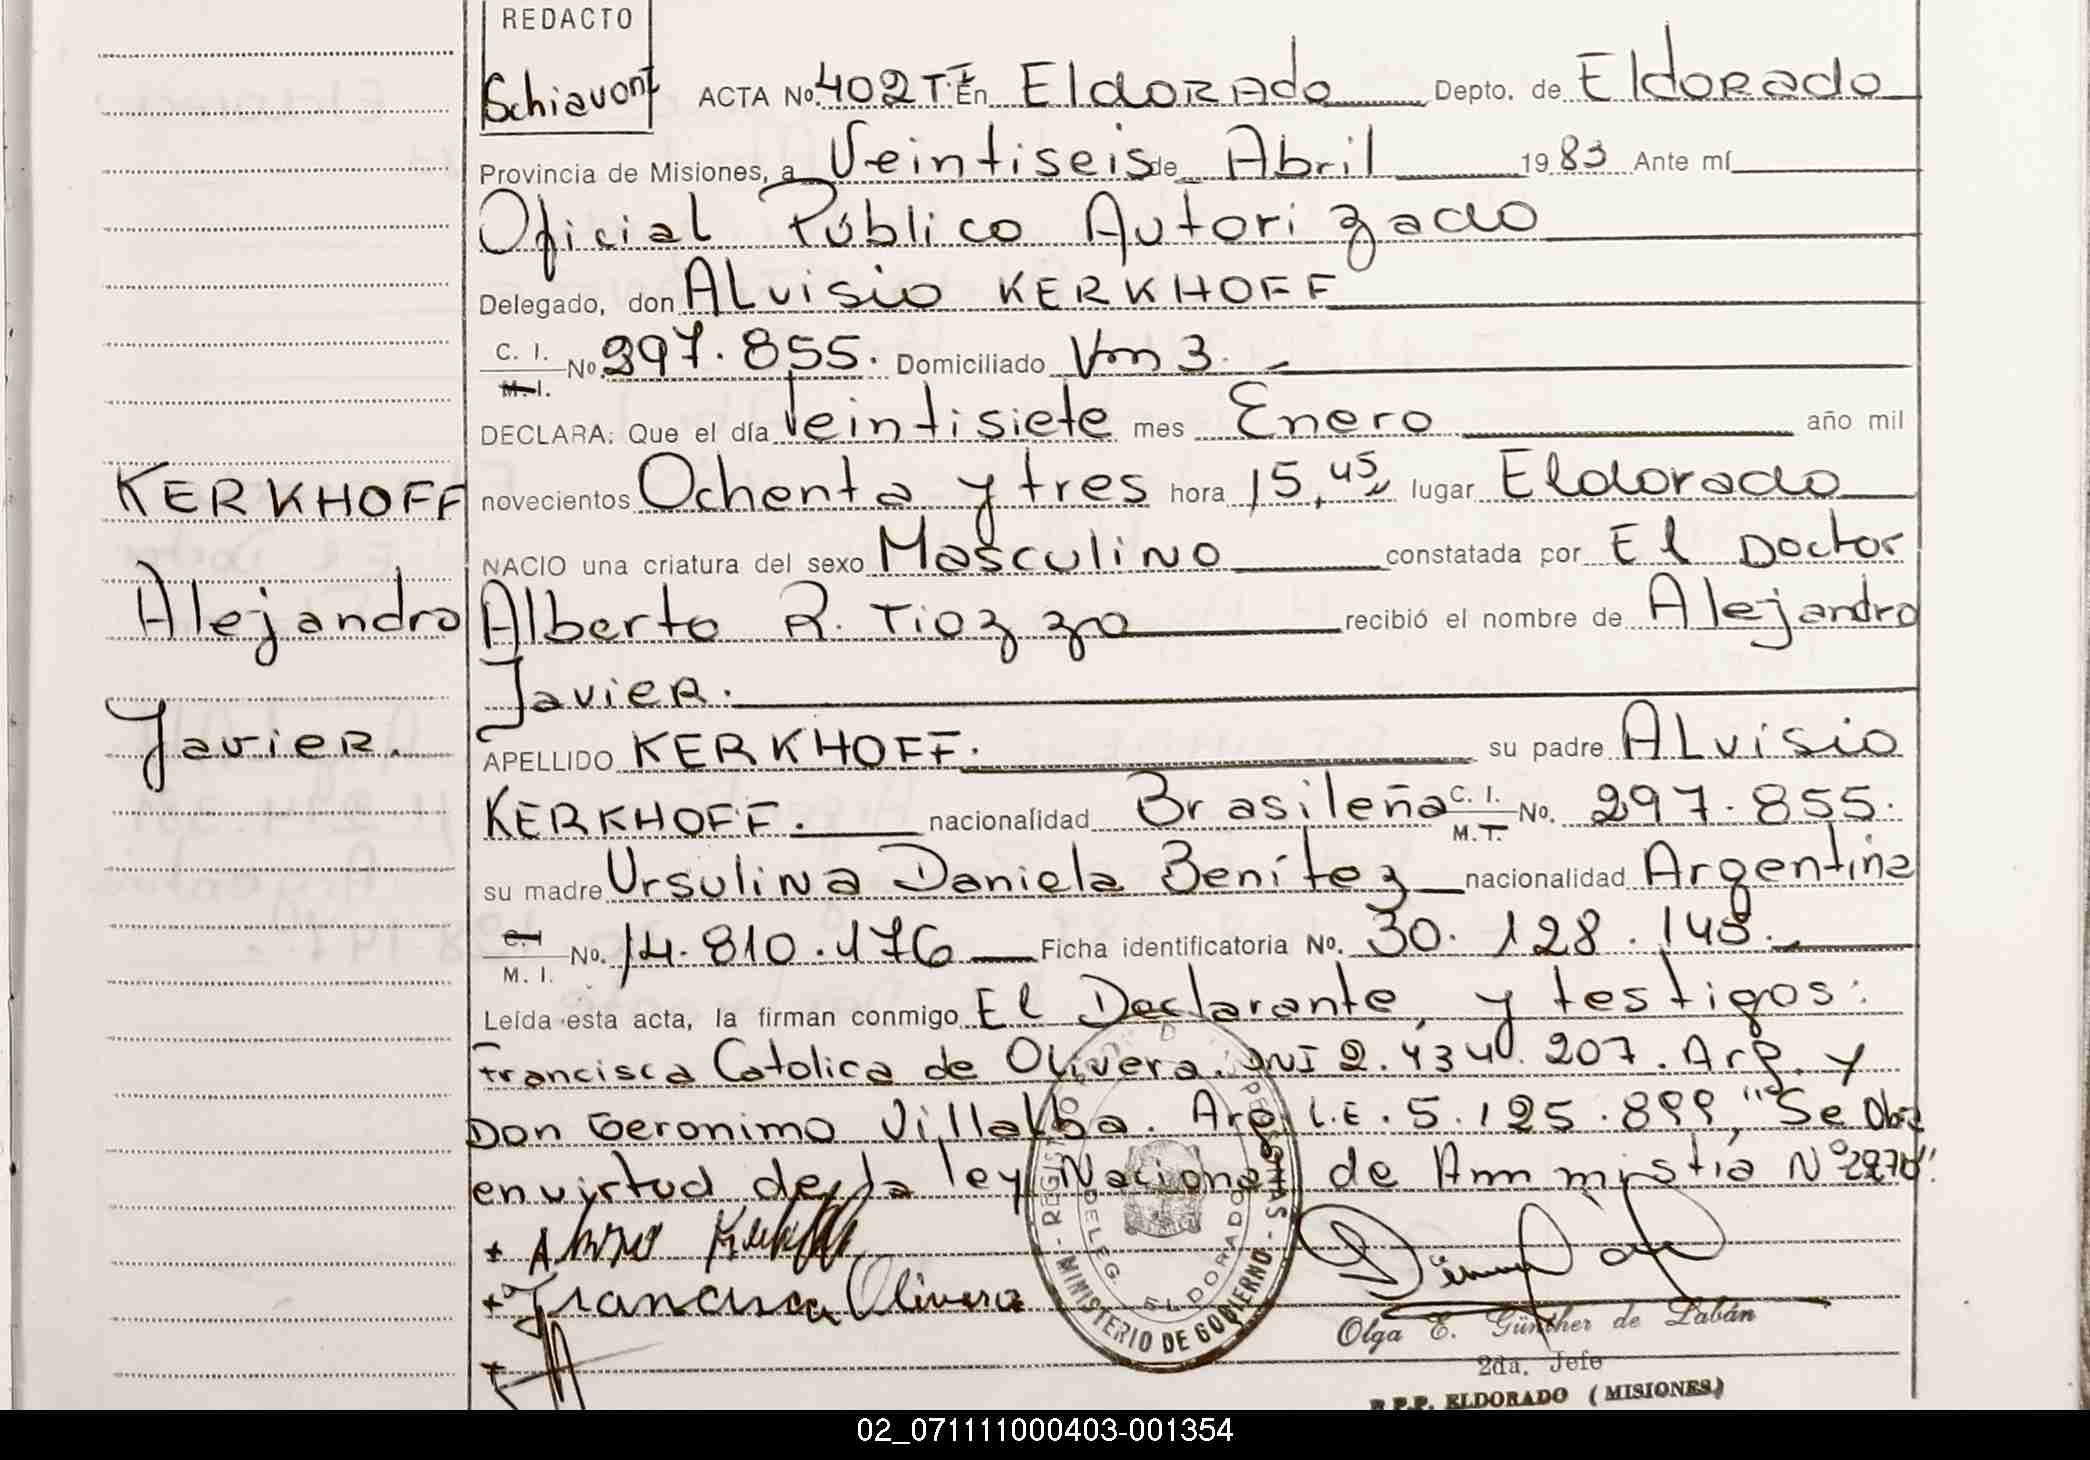 REDACTO
Schiavoni ACTA No. 402 T.E En Eldorado Depto. de Eldorado
Provincia de Misiones, a Veintiseis de Abril 1983 Ante mí
Oficial Público Autorizado
Delegado, don Alvisio KERKHOFF
C. I. M. I. No. 297.855. Domiciliado Km 3.
DECLARA: Que el día Veintisiete mes Enero año mil
KERKHOFF novecientos Ochenta y tres hora 15,45 lugar Eldorado
NACIO una criatura del sexo Masculino constatada por El Doctor
Alejandro Alberto R. Tiozzo recibió el nombre de Alejandro
Javier. Javier.
APELLIDO KERKHOFF. su padre Alvisio
KERKHOFF. nacionalidad Brasileña C. I. M. I. No. 297.855.
su madre Ursulina Daniela Benítez nacionalidad Argentina
C. I. M. I. No. 14.810.176 Ficha identificatoria No. 30.128.148.
Leída esta acta, la firman conmigo El Declarante, y testigos:
Francisca Catolica de Olivera. DNI 2.434.207. Arg. y
Don Geronimo Villalba. Arg. L.E. 5.125.899, "Se Obra
en virtud de la ley Nacional de Amnistia Nº
Francisca Olivera
REGIST PERSONAS - MINISTERIO DE GOBIERNO -
DELEG. ELDORADO
Olga E. Günther de Labán
2da. Jefe
R.P.P. ELDORADO (MISIONES)
02_071111000403-001354